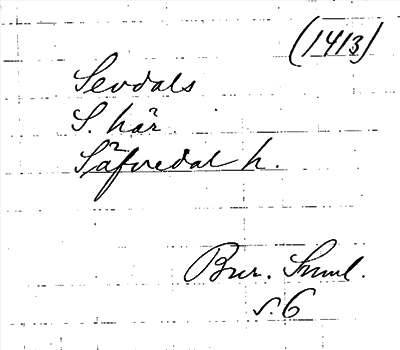 (1413)
Sevdals
S. här
Säfvedal h.
Bur. Saml.
s. 6